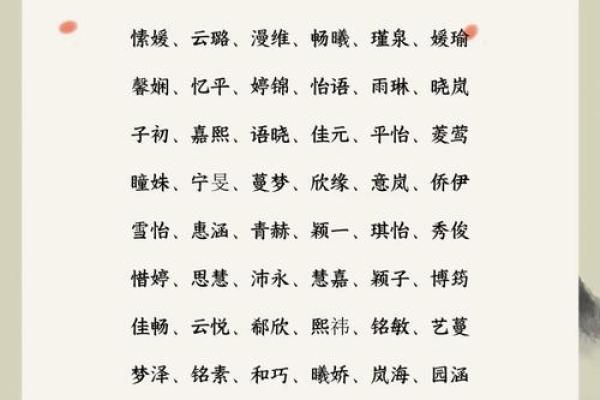 愫媛、云璐、漫维、畅曦、瑾泉、媛瑜
馨娴、忆平、婷锦、怡语、雨琳、晓岚
子初、嘉熙、语晓、佳元、平怡、菱莺
瞳姝、宁旻、蔓梦、欣缘、意岚、侨伊
雪怡、惠涵、青赫、颖一、琪怡、秀俊
惜婷、思慧、沛永、慧嘉、颖子、博筠
佳畅、云悦、郗欣、熙祎、铭敏、艺蔓
梦泽、铭素、和巧、曦娇、岚海、园涵